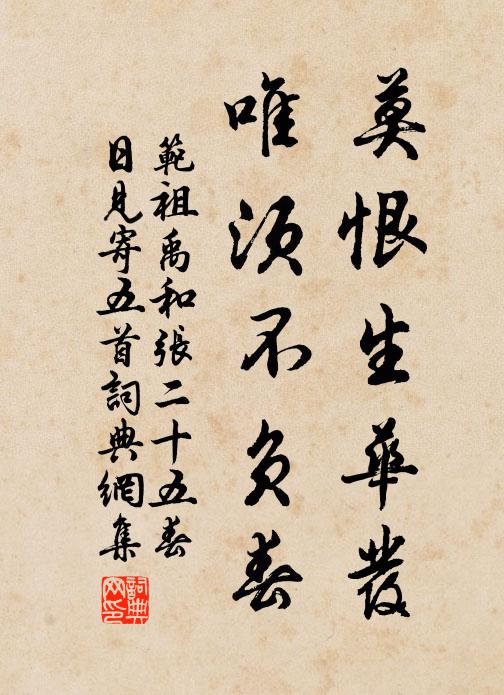 莫恨生華發
唯須不負春
範祖禹和張二十五春
日見寄五首詞典網集
詞典網印